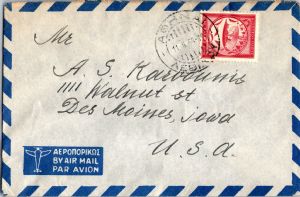 Mr.
A. S. Karodounis
1111 Walnut st
Des Moines, iowa
U. S. A.
ΑΕΡΟΠΟΡΙΚΩΣ
BY AIR MAIL
PAR AVION